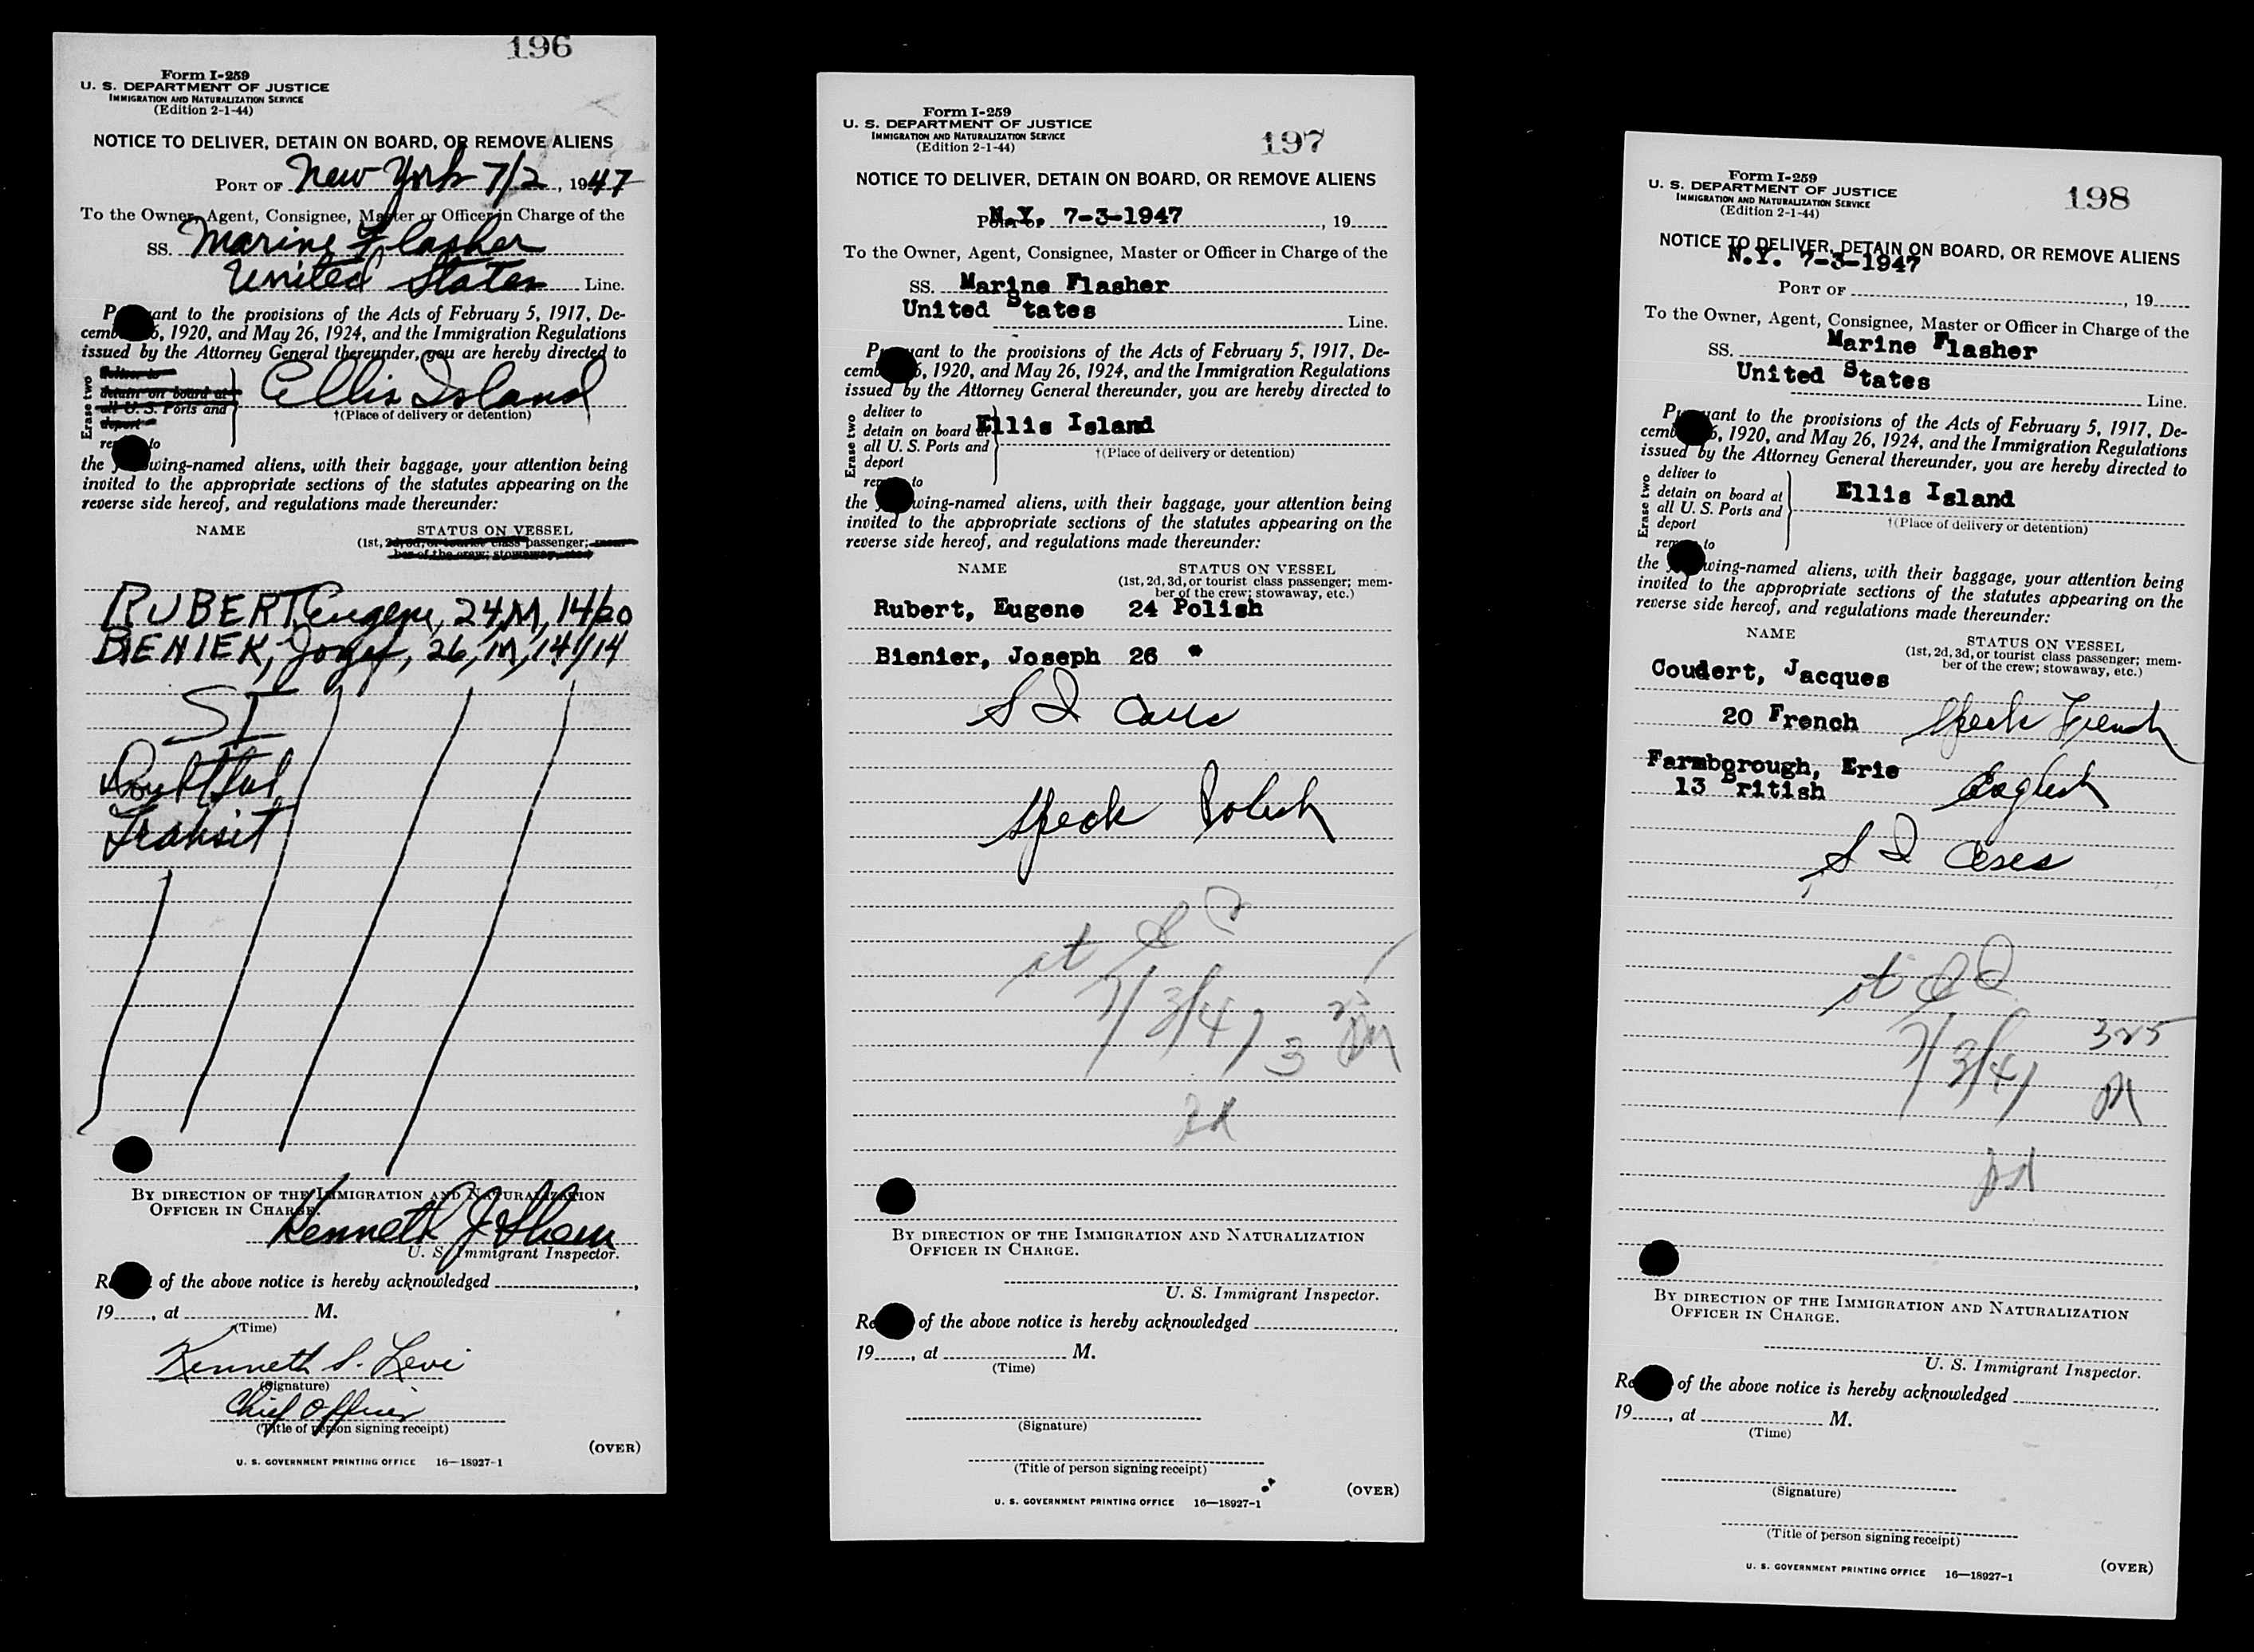 196
Form I-259
U. S. DEPARTMENT OF JUSTICE
IMMIGRATION AND NATURALIZATION SERVICE
(Edition 2-1-44)
NOTICE TO DELIVER, DETAIN ON BOARD, OR REMOVE ALIENS
PORT OF New York 7/2, 1947
To the Owner, Agent, Consignee, Master or Officer in Charge of the
SS. Marine Flasher
United States Line.
P ant to the provisions of the Acts of February 5, 1917, De-
cemb 6, 1920, and May 26, 1924, and the Immigration Regulations
issued by the Attorney General thereunder, you are hereby directed to
Erase two
deliver to
detain on board at
all U. S. Ports and
deport
re to
Ellis Island
†(Place of delivery or detention)
the wing-named aliens, with their baggage, your attention being
invited to the appropriate sections of the statutes appearing on the
reverse side hereof, and regulations made thereunder:
NAME STATUS ON VESSEL
(1st, 2d, 3d, or tourist class passenger; mem-
ber of the crew; stowaway, etc.)
RUBERT, Eugene, 24, M, 14/20
BIENIEK, Jozef, 26, M, 14/14
SI
Doubtful
Transit
BY DIRECTION OF THE IMMIGRATION AND NATURALIZATION
OFFICER IN CHARGE.
Kenneth J.
U. S. Immigrant Inspector.
R of the above notice is hereby acknowledged ,
19 , at M.
(Time)
Kenneth S. Levi
(Signature)
Chief Officer
(Title of person signing receipt)
(OVER)
U. S. GOVERNMENT PRINTING OFFICE 16—18927-1
Form I-259
U. S. DEPARTMENT OF JUSTICE
IMMIGRATION AND NATURALIZATION SERVICE
(Edition 2-1-44)
197
NOTICE TO DELIVER, DETAIN ON BOARD, OR REMOVE ALIENS
PORT OF N.Y. 7-3-1947 , 19
To the Owner, Agent, Consignee, Master or Officer in Charge of the
SS. Marine Flasher
United States Line.
Pu uant to the provisions of the Acts of February 5, 1917, De-
cemb 6, 1920, and May 26, 1924, and the Immigration Regulations
issued by the Attorney General thereunder, you are hereby directed to
Erase two
deliver to
detain on board at
all U. S. Ports and
deport
re to
Ellis Island
†(Place of delivery or detention)
the wing-named aliens, with their baggage, your attention being
invited to the appropriate sections of the statutes appearing on the
reverse side hereof, and regulations made thereunder:
NAME STATUS ON VESSEL
(1st, 2d, 3d, or tourist class passenger; mem-
ber of the crew; stowaway, etc.)
Rubert, Eugene 24 Polish
Bienier, Joseph 26 "
S I Cases
Speak Polish
at S I
7/3/47 3 25 PM
BY DIRECTION OF THE IMMIGRATION AND NATURALIZATION
OFFICER IN CHARGE.
U. S. Immigrant Inspector.
Re of the above notice is hereby acknowledged ,
19 , at M.
(Time)
(Signature)
(Title of person signing receipt)
(OVER)
U. S. GOVERNMENT PRINTING OFFICE 16—18927-1
Form I-259
U. S. DEPARTMENT OF JUSTICE
IMMIGRATION AND NATURALIZATION SERVICE
(Edition 2-1-44)
198
NOTICE TO DELIVER, DETAIN ON BOARD, OR REMOVE ALIENS
N.Y. 7-3-1947
PORT OF , 19
To the Owner, Agent, Consignee, Master or Officer in Charge of the
SS. Marine Flasher
United States
Line.
Pu uant to the provisions of the Acts of February 5, 1917, De-
cemb 6, 1920, and May 26, 1924, and the Immigration Regulations
issued by the Attorney General thereunder, you are hereby directed to
Erase two
deliver to
detain on board at
all U. S. Ports and
deport
rem to
Ellis Island
†(Place of delivery or detention)
the wing-named aliens, with their baggage, your attention being
invited to the appropriate sections of the statutes appearing on the
reverse side hereof, and regulations made thereunder:
NAME STATUS ON VESSEL
(1st, 2d, 3d, or tourist class passenger; mem-
ber of the crew; stowaway, etc.)
Coudert, Jacques
20 French Speak French
Farmborough, Eric
13 British English
S I Cases
at S I
7/3/47 3 25
PM
BY DIRECTION OF THE IMMIGRATION AND NATURALIZATION
OFFICER IN CHARGE.
U. S. Immigrant Inspector.
Re of the above notice is hereby acknowledged ,
19 , at M.
(Time)
(Signature)
(Title of person signing receipt)
(OVER)
U. S. GOVERNMENT PRINTING OFFICE 16—18927-1